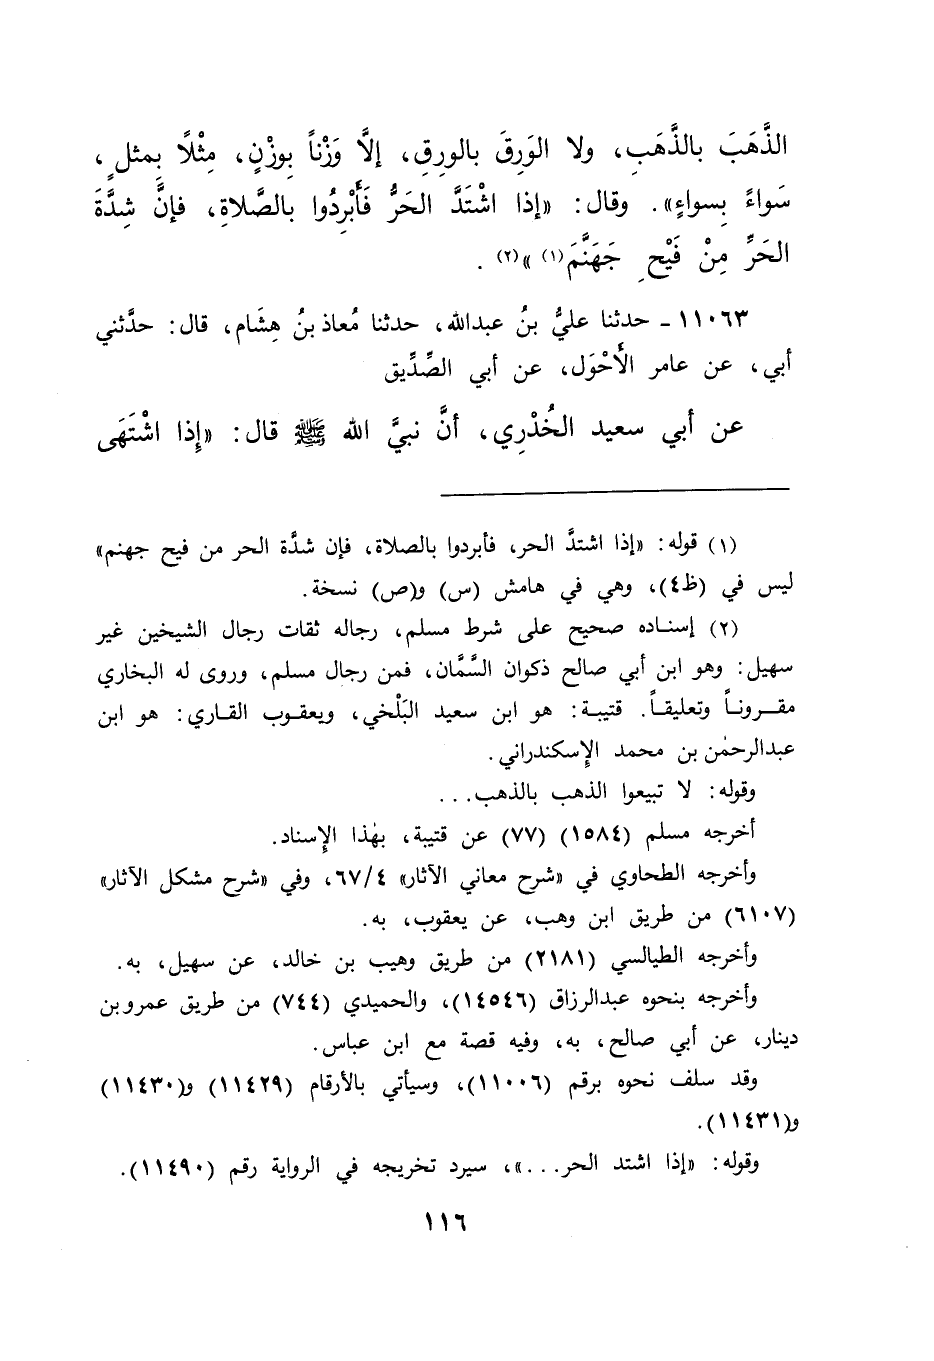 الذَّهَبَ بالذَّهَبِ، ولا الوَرِقَ بالورِقِ، إلَّا وَزْناً بوزْنٍ، مِثْلًا بِمثلٍ،
سَواءً بِسواءٍ». وقال: «إذا اشْتَدَّ الحَرُّ فَأَبْرِدُوا بالصَّلاةِ، فإنَّ شِدَّةَ
الحَرِّ مِنْ فَيْحِ جَهَنَّمَ(١)»(٢).
١١٠٦٣ - حدثنا عليُّ بنُ عبدالله، حدثنا مُعاذ بنُ هِشَام، قال: حدَّثني
أبي، عن عامر الأَحْوَل، عن أبي الصِّدِّيق
عن أبي سعيد الخُدْرِي، أنَّ نبيَّ الله ﷺ قال: «إِذا اشْتَهَى
(١) قوله: «إذا اشتدَّ الحر، فأبردوا بالصلاة، فإن شدَّة الحر من فيح جهنم»
ليس في (ظ٤)، وهي في هامش (س) و(ص) نسخة.
(٢) إسناده صحيح على شرط مسلم، رجاله ثقات رجال الشيخين غير
سهيل: وهو ابن أبي صالح ذكوان السَّمَّان، فمن رجال مسلم، وروى له البخاري
مقروناً وتعليقاً. قتيبة: هو ابن سعيد البَلْخي، ويعقوب القاري: هو ابن
عبدالرحمٰن بن محمد الإِسكندراني.
وقوله: لا تبيعوا الذهب بالذهب...
أخرجه مسلم (١٥٨٤) (٧٧) عن قتيبة، بهٰذا الإِسناد.
وأخرجه الطحاوي في «شرح معاني الآثار» ٦٧/٤، وفي «شرح مشكل الآثار»
(٦١٠٧) من طريق ابن وهب، عن يعقوب، به.
وأخرجه الطيالسي (٢١٨١) من طريق وهيب بن خالد، عن سهيل، به.
وأخرجه بنحوه عبدالرزاق (١٤٥٤٦)، والحميدي (٧٤٤) من طريق عمرو بن
دينار، عن أبي صالح، به، وفيه قصة مع ابن عباس.
وقد سلف نحوه برقم (١١٠٠٦)، وسيأتي بالأرقام (١١٤٢٩) و(١١٤٣٠)
و(١١٤٣١).
وقوله: «إذا اشتد الحر...»، سيرد تخريجه في الرواية رقم (١١٤٩٠).
١١٦